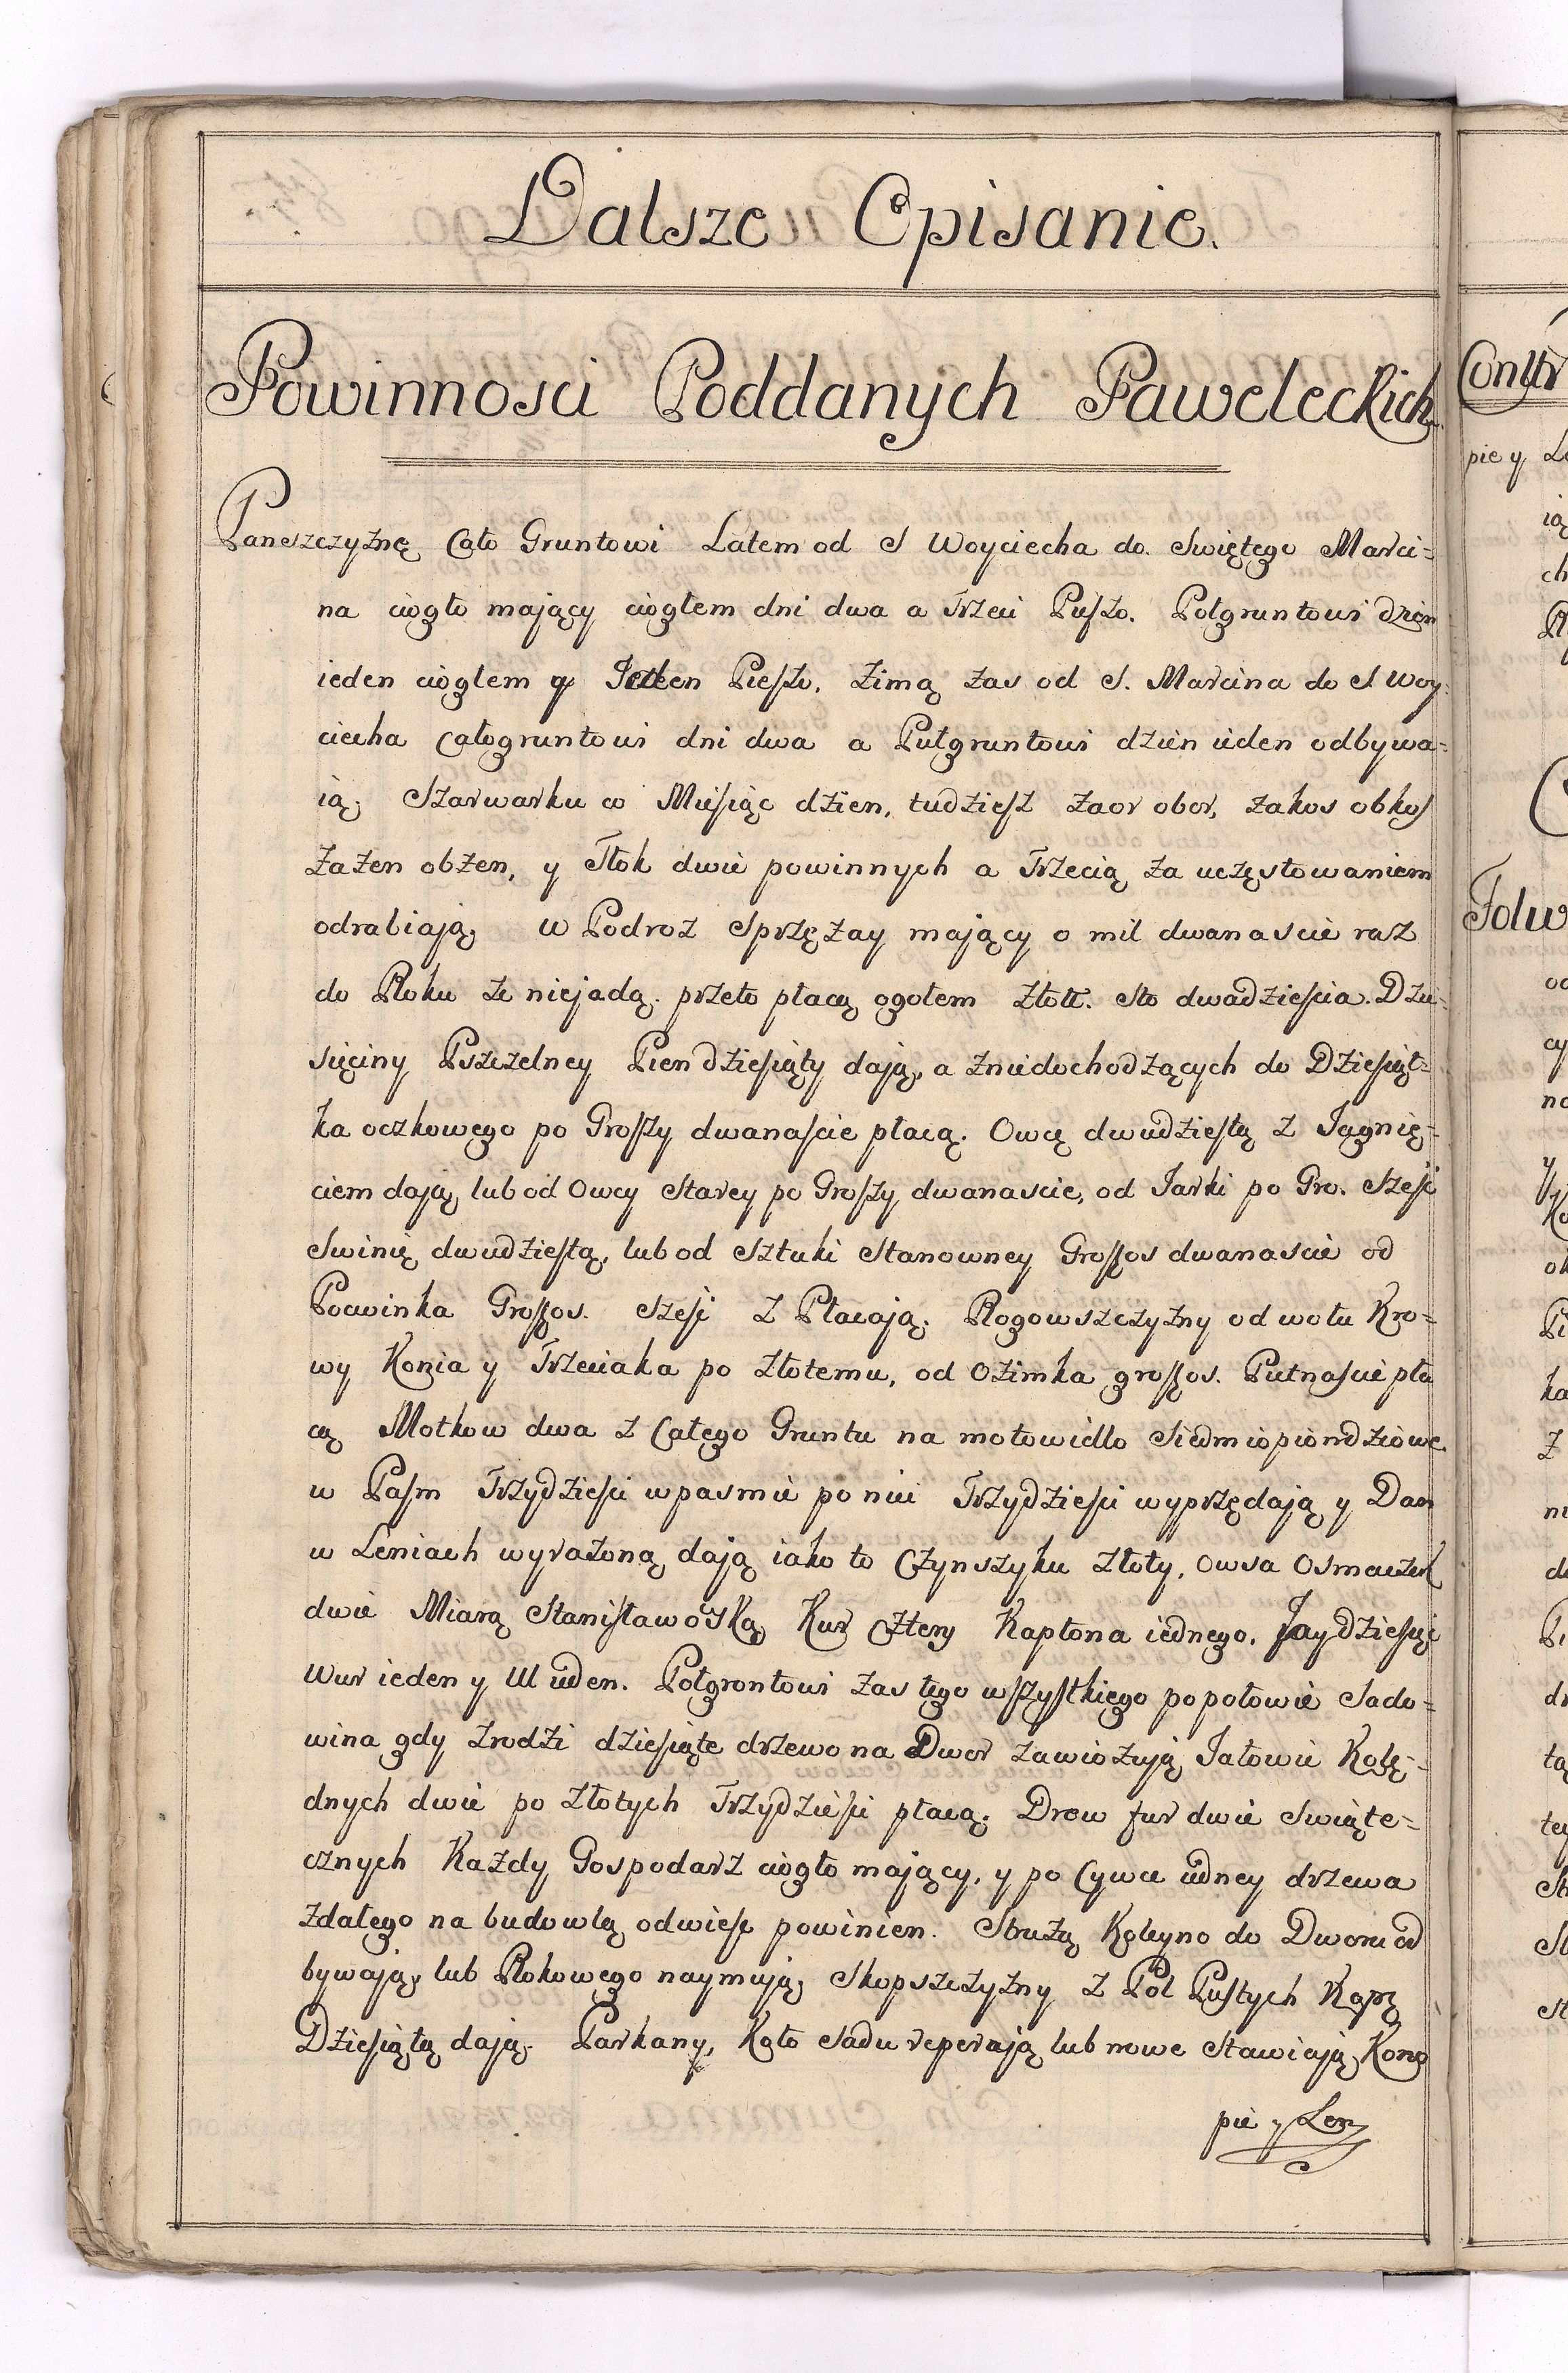 Dalsze Opisanie.
Powinnosci Poddanych Paweleckich.
Panszczyznę Cało Gruntowi Latem od S Woyciecha do Swiętego Marci=
na ciągło mający ciągłem dni dwa a Trzeci Pieszo. Połgruntowi dzien
ieden ciągłem y Jeden Pieszo. Zimą zas od S. Marcina do S Woy=
ciecha Całogruntowi dni dwa a Pułgruntowi dzien ieden odbywa=
ią. Szarwarku co Miesiąc dzien, tudziesz zaor obor, zakos obkos
zazen obzen, y Tłok dwie powinnych a Trzecią za uczęstowaniem
odrabiają, w Podroz Sprzęzay mający o mil dwanascie raz
do Roku ze niejadą. przeto płacą ogołem Złott. Sto dwadziescia. Dzie=
sięciny Pszczelney Pien dziesiąty dają, a zniedochodzących do Dziesiąt=
ka oczkowego po Groszy dwanascie płacą. Owcę dwudziestą z Jagnię=
ciem dają, lub od Owcy Starey po Groszy dwanascie, od Jarki po Gro. Szesc
Swinię dwudziestą, lub od Sztuki Stanowney Groszos dwanascie od
Pocwinka Groszos. Szesc Z Płacają. Rogowszczyzny od wołu Kro=
wy Konia y Trzeciaka po Złotemu, od Ozimka groszos. Pietnascie pła
cą Motkow dwa z Całego Gruntu na motowidło Siedmiopiondziowe
w Pasm Trzydziesci w pasmie po nici Trzydziesci wyprzędają y Dan
w Leniach wyrazoną dają iako to Czynszyku Złoty, Owsa Osmaczek
dwie Miarą Stanisławowską Kur Cztery Kapłona iednego, Jay dziesięć
Wur ieden y Ul ieden. Połgrontowi zas tego wszystkiego po połowie Sado=
wina gdy zrodzi dziesiąte drzewo na Dwor zawiozują Jałowic Kolę=
dnych dwie po Złotych Trzydziesci płacą. Drew fur dwie Swiąte=
cznych Kazdy Gospodarz ciągło mający, y po Cywce iedney drzewa
zdałego na budowlą odwiesc powinien. Struzą Koleyno do Dworu od
bywają, lub Rokowego naymują, Skopszczyzny z Pol Pustych Kopę
Dziesiątą dają. Parkany, Koło Sadu reperają lub nowe Stawiają, Kono
pie y Len